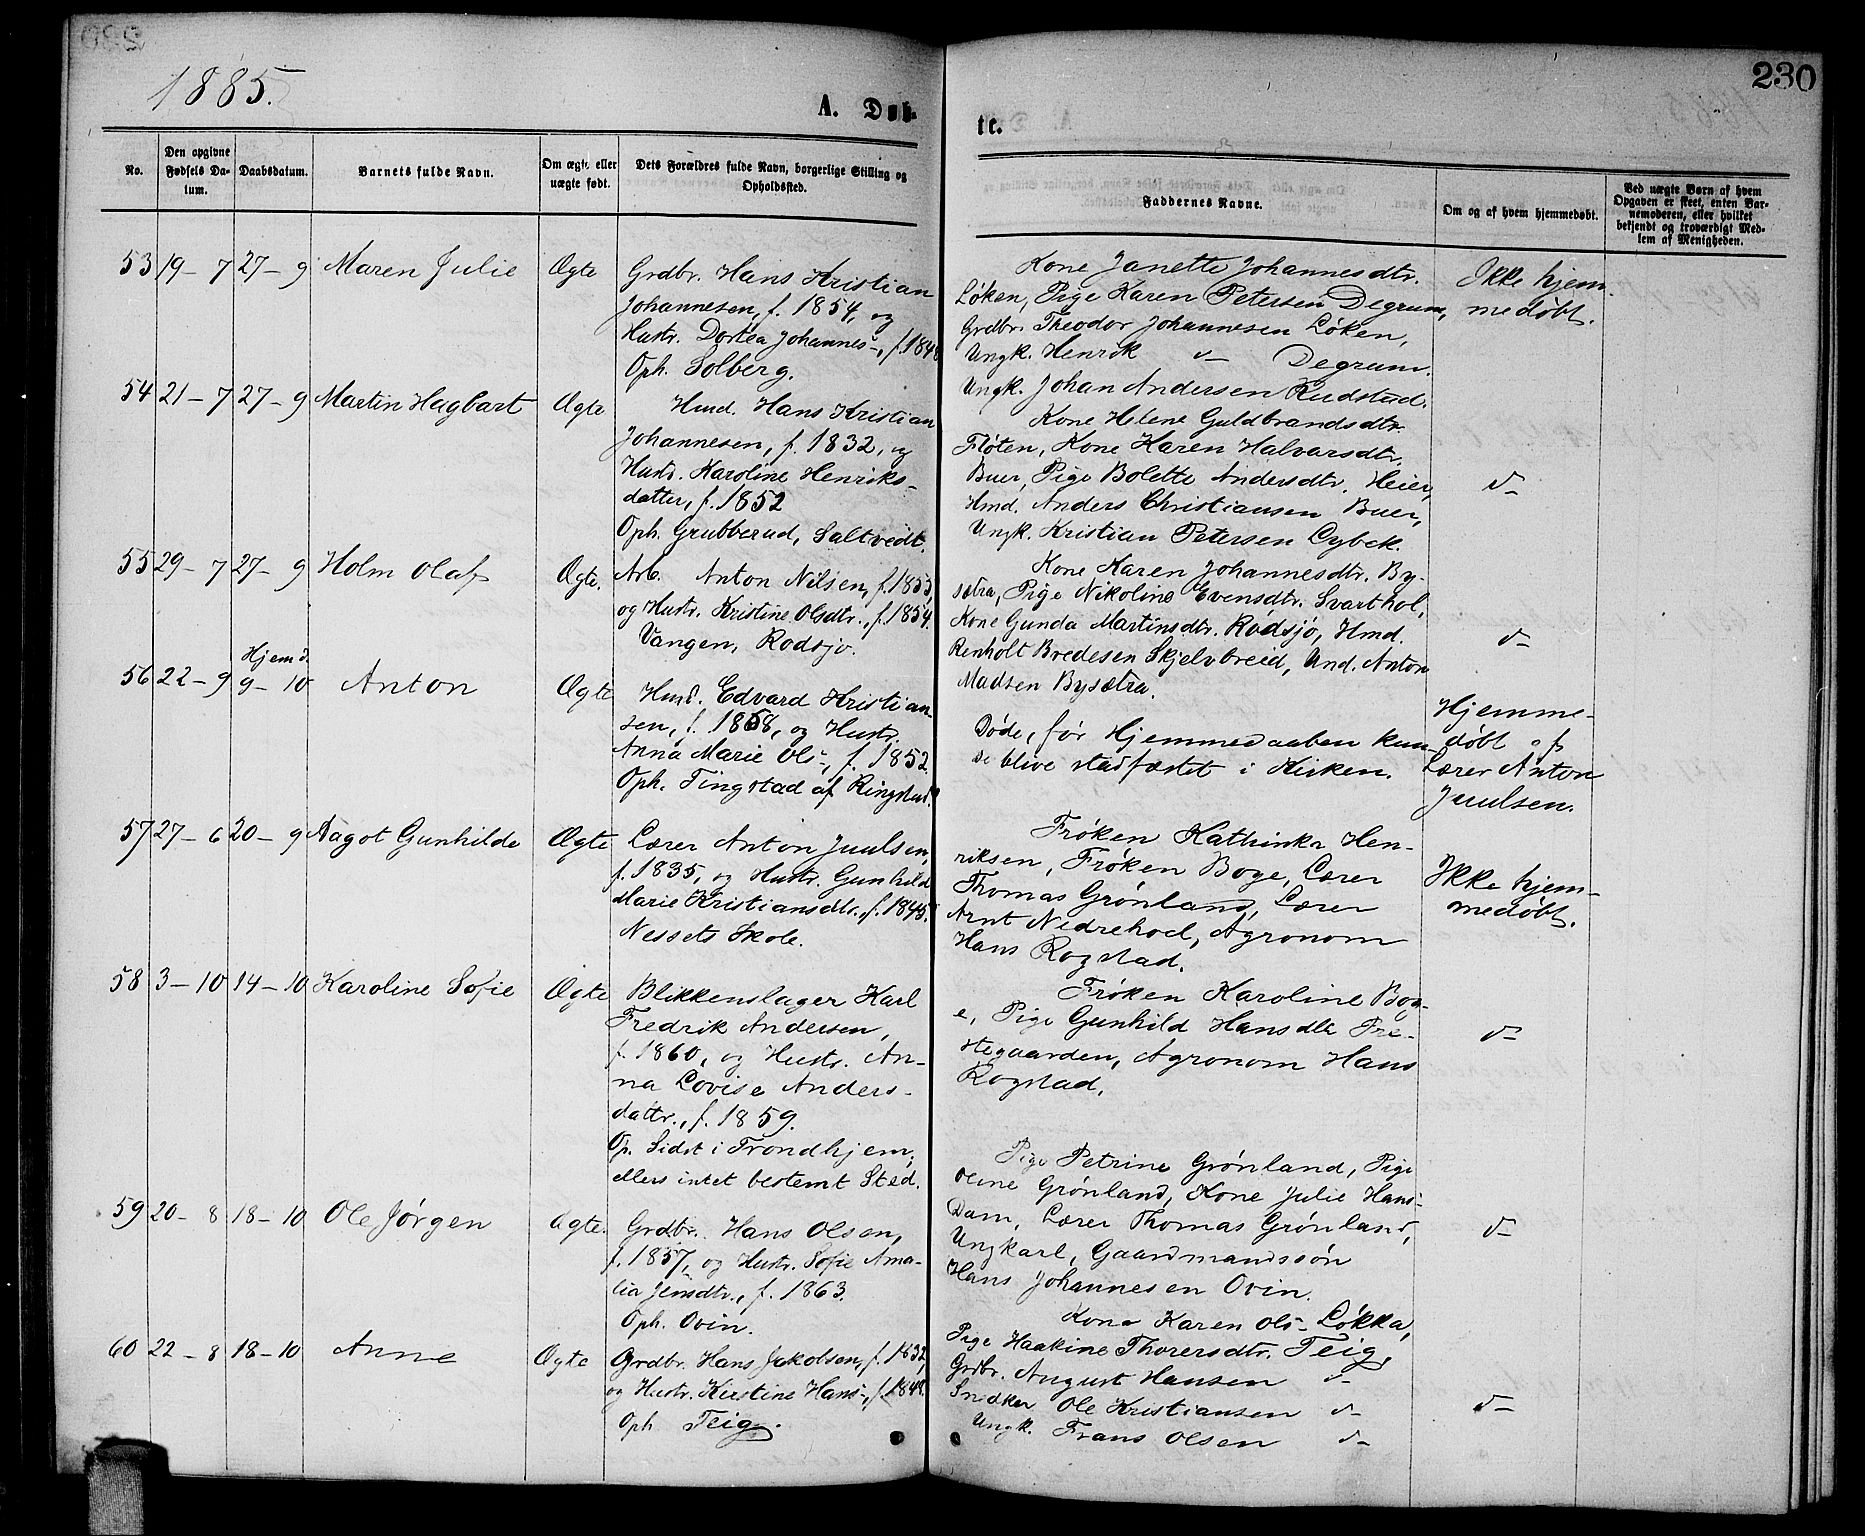 1885.
230
A. Døb-
te.
No.
Den opgivne
Fødsels Da-
tum.
Daabsdatum.
Barnets fulde Navn.
Om ægte eller
uægte født.
Dets Forældres fulde Navn, borgerlige Stilling og
Opholdssted.
Faddernes Navne.
Om og af hvem hjemmedøbt.
Ved uægte Børn af hvem
Opgaven er skeet, enten Bar-
nemoderen, eller hvilket
bekjendt og troværdigt Med-
lem af Menigheden.
53 19-7 27-9 Maren Julie Ægte
Grdbr. Hans Kristian
Johannesen, f. 1854, og
Hustr. Dortea Johannes-, f. 184
Oph. Solberg.
Kone Janette Johannesdtr.
Løken, Pige Karen Petersen Degrum,
Grdbr. Theodor Johannesen Løken,
Ungk. Henrik d- Degrum.
Ungk. Johan Andersen Rudstad.
Ikke hjem-
medøbt.
54 21-7 27-9 Martin Hagbart Ægte
Hmd. Hans Kristian
Johannesen, f. 1832, og
Hustr. Karoline Henriks-
datter, f. 1852
Oph. Grubberud, Saltvedt.
Kone Helene Guldbrandsdtr.
Fløten, Kone Karen Halvarsdtr.
Buer, Pige Bolette Andersdtr. Heier,
Hmd. Anders Christiansen Buer,
Ungk. Kristian Petersen Lybek.
d-
55 29-7 27-9 Holm Olaf Ægte.
Arb. Anton Nilsen, f. 1853,
og Hustr. Kristine Olsdtr., f. 1854.
Vangen, Rodsjø.
Kone Karen Johannesdtr. By-
sætra, Pige Nikoline Evensdtr. Svarthol,
Kone Gunda Martinsdtr. Rødsjø, Hmd.
Renholt Bredesen Skjelvbreid, Und. Anton
Madsen Bysætra.
d-
Hjemd.
56 22-9 9-10 Anton Ægte
Hmd. Edvard Kristian-
sen, f. 1858, og Hustr.
Anna Marie Ols-, f. 1852.
Oph. Tingstad af Ringstad.
Døde, før Hjemmedaaben kun-
de blive stadfæstet i Kirken.
Hjemme-
døbt af
Lærer Anton
Juulsen.
57 27-6 20-9 Aagot Gunhilde Ægte
Lærer Anton Juulsen,
f. 1835, og Hustr. Gunhild
Marie Kristiansdtr., f. 1845.
Nessets Skole.
Frøken Kathinka Hen-
riksen, Frøken Boge, Lærer
Thomas Grønland, Lærer
Arnt Nedrehod, Agronom
Hans Rogstad.
Ikke hjem-
medøbt.
58 3-10 14-10 Karoline Sofie Ægte
Blikkenslager Karl
Fredrik Andersen,
f. 1860, og Hustr. An-
na Lovise Anders-
dattr., f. 1859.
Op. Sidst i Trondhjem;
ellers intet bestemt Sted.
Frøken Karoline Bog-
e, Pige Gunhild Hansdtr Pre-
stegaarden, Agronom Hans
Rogstad.
d-
59 20-8 18-10 Ole Jørgen Ægte.
Grdbr. Hans Olsen,
f. 1857, og Hustr. Sofie Ama-
lia Jensdtr., f. 1863.
Oph. Ovin.
Pige Petrine Grønland, Pige
Oline Grønland, Kone Julie Hans-
Dam, Lærer Thomas Grønland,
Ungkarl, Gaardmandssøn
Hans Johannesen Ovin.
d-
60 22-8 18-10 Anne Ægte
Grdbr. Hans Jakobsen, f. 1832,
og Hustr. Kirstine Hans-, f. 1849.
Oph. Teig.
Kone Karen Ols- Løkka,
Pige Haakine Thorersdtr. Teig,
Grdbr. August Hansen d-
Snedker Ole Kristiansen d-
Ungk. Frans Olsen d-
d-